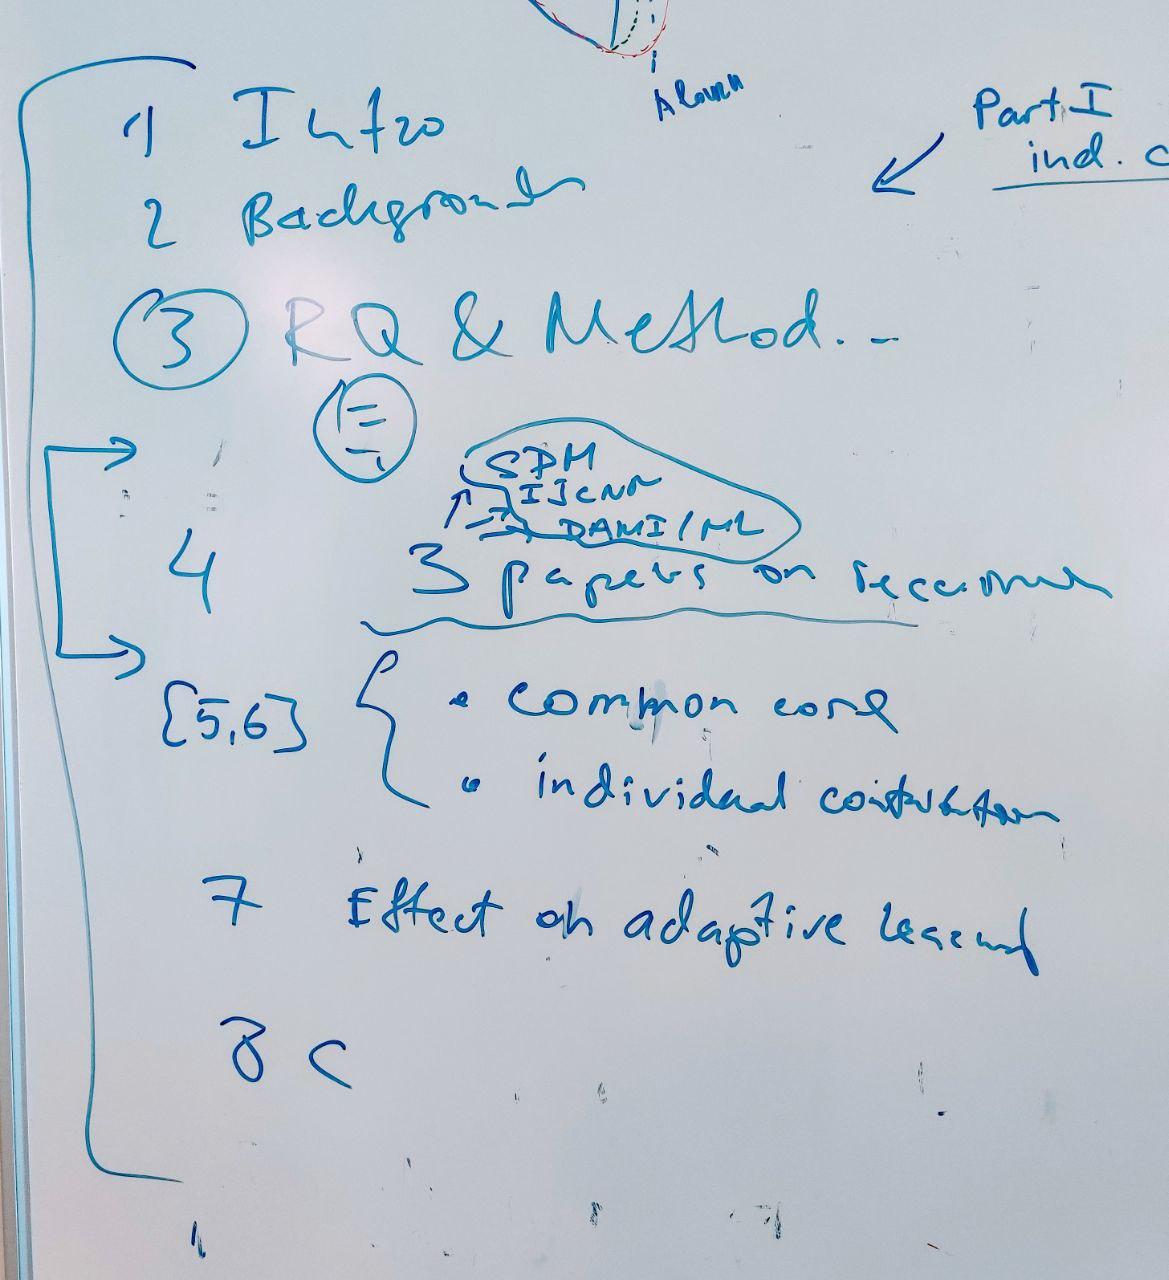 Part I
ind. c
1 Intro
2 Background
3 RQ & Method...
SDM
IJCNN
DAMI/ML
4 3 papers on
[5,6] { • common core
• individual contribution
7 Effect on adaptive
8 C